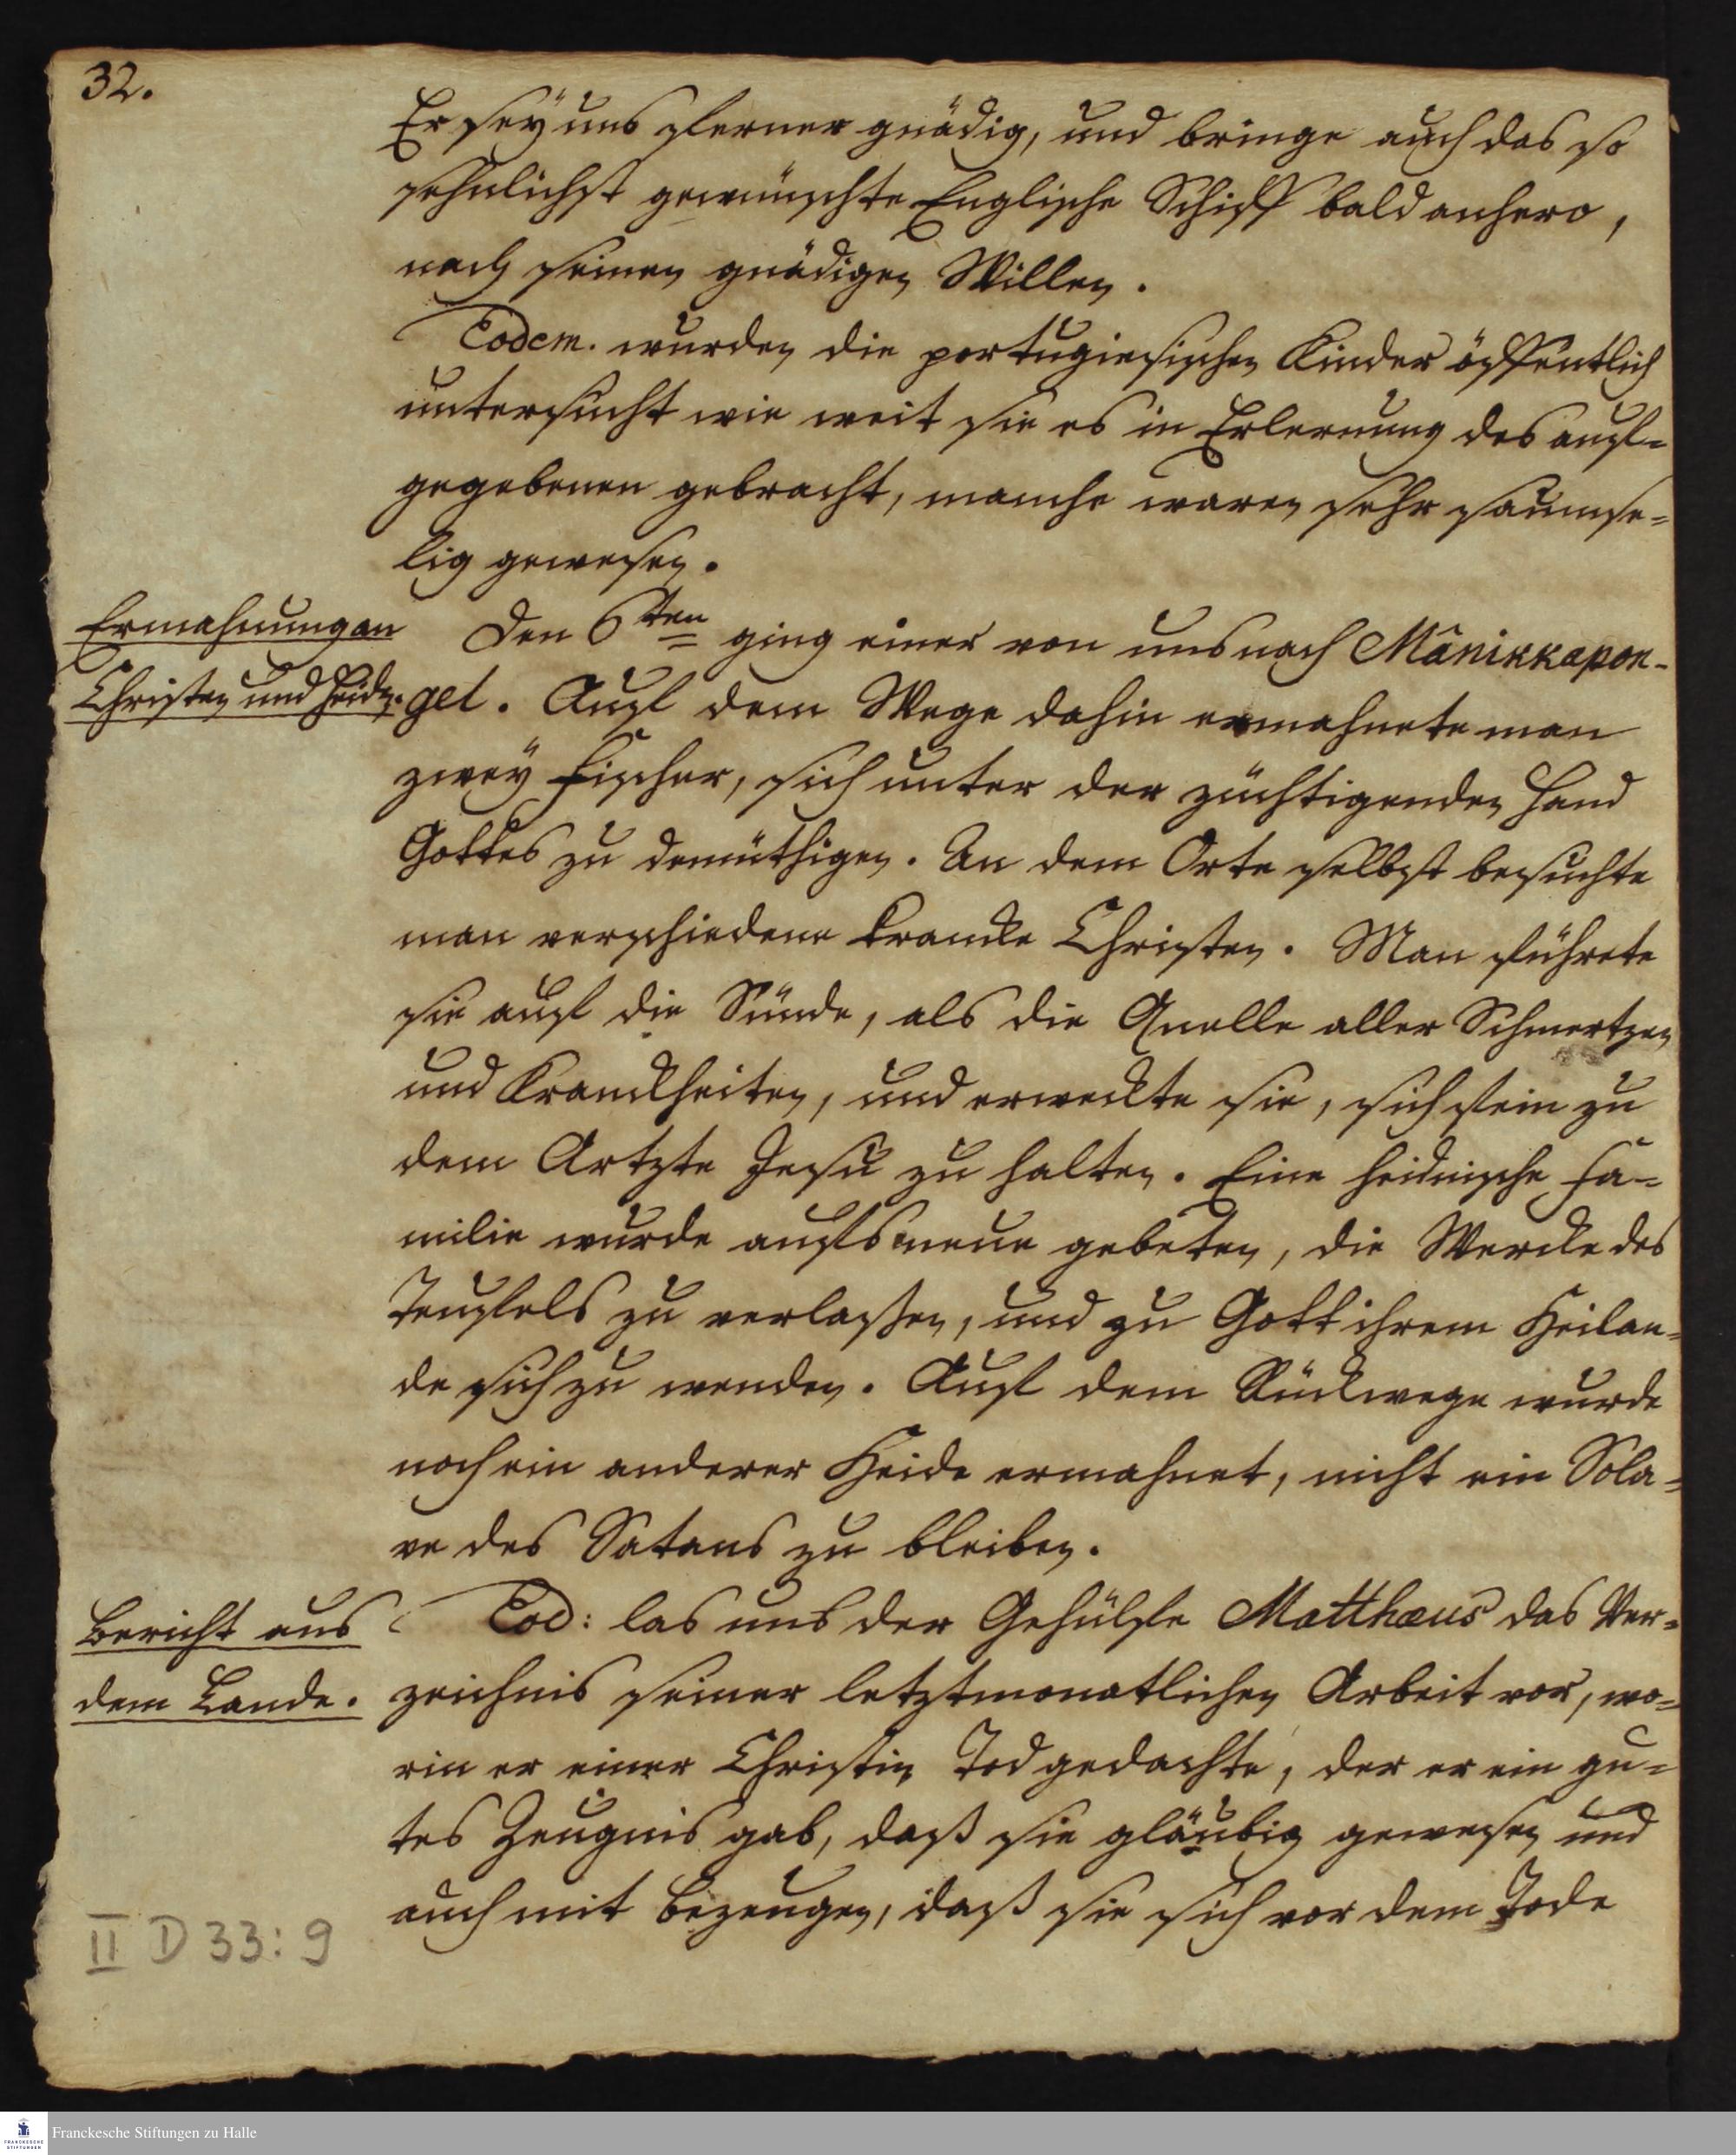 32.
Er sey uns ferner gnädig, und bringe auch das so
sehnlichst gewünschte Englische Schiff bald anhero,
nach seinen gnädigen Willen.
Eodem. wurden die portugiesischen Kinder öffentlich
untersucht wie weit sie es in Erlernung des auf-
gegebenen gebracht, manche waren sehr saumse-
lig gewesen.
Ermahnung an
Christen und Heiden.
Den 6ten ging einer von uns nach Mânikkapon-
gel. Auf dem Wege dahin ermahnete man
zwey Fischer, sich unter der züchtigenden Hand
Gottes zu demüthigen. An dem Orte selbst besuchte
man verschiedene krancke Christen. Man führete
sie auf die Sünde, als die Quelle aller Schmertzen
und Kranckheiten, und erweckte sie, sich fein zu
dem Artzte Jesu zu halten. Eine heidnische Fa-
milie wurde aufs neue gebeten, die Wercke des
Teufels zu verlaßen, und zu Gott ihrem Heilan-
de sich zu wenden. Auf dem Rückwege wurde
noch ein anderer Heide ermahnet, nicht ein Scla-
ve des Satans zu bleiben.
Bericht aus
dem Lande.
Eod: las uns der Gehülfe Matthæus das Ver-
zeichnis seiner letztmonatlichen Arbeit vor, wo-
rin er einer Christin Tod gedachte, der er ein gu-
tes Zeugnis gab, daß sie gläubig gewesen und
auch mit bezeugen, daß sie sich vor dem Tode
II D 33:9
FRANCKESCHE
STIFTUNGEN
Franckesche Stiftungen zu Halle